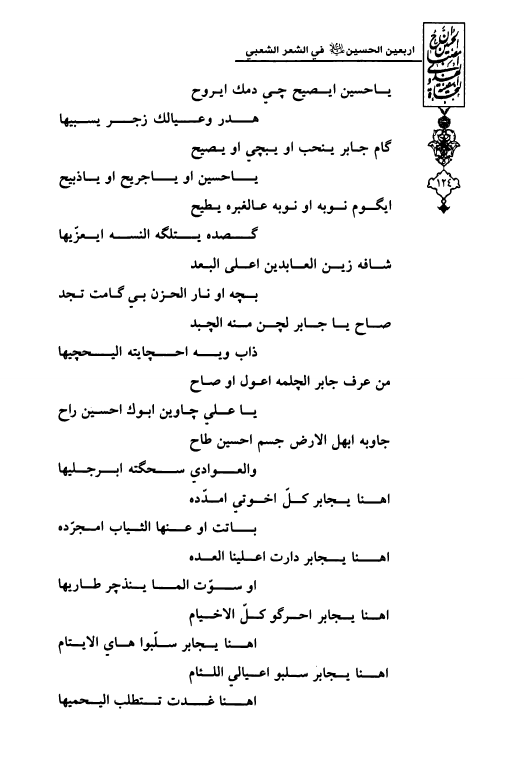 اربعين الحسين في الشعر الشعبي
١٢٤
يـاحسين ايـصيح چـي دمك ايـروح
هـدر وعـيالك زجـر يسـبيها
گام جـابر يـنحب او يـبچي او يـصيح
يـاحسين او يـاجريح او يـاذبيح
ايگـوم نـوبه او نوبه عـالغبره يـطيح
گـصده يـتلگه النسـه ايـعزّيها
شـافه زيـن العـابدين اعـلى البعـد
بـچه او نـار الحـزن بـي گـامت تـجد
صـاح يـا جـابر لچـن مـنه الچـبد
ذاب ويـه احـچايته اليـحچيها
من عرف جابر الچلمه اعول او صاح
يـا عـلي چـاوين ابـوك احسـين راح
جاوبه ابهل الارض جسم احسين طاح
والعـوادي سـحگته ابـرجليها
اهـنا يـجابر كـلّ اخـوتي امـدّده
بـاتت او عـنها الثـياب امـجرّده
اهـنا يـجابر دارت اعـلينا العـده
او سـوّت المـا يـنذچر طـاريها
اهـنا يـجابر احـرگو كـلّ الاخـيام
اهـنا يـجابر سـلّبوا هـاي الايـتام
اهـنا يـجابر سـلبو اعـيالي اللـئام
اهـنا غـدت تـتطلب اليـحميها